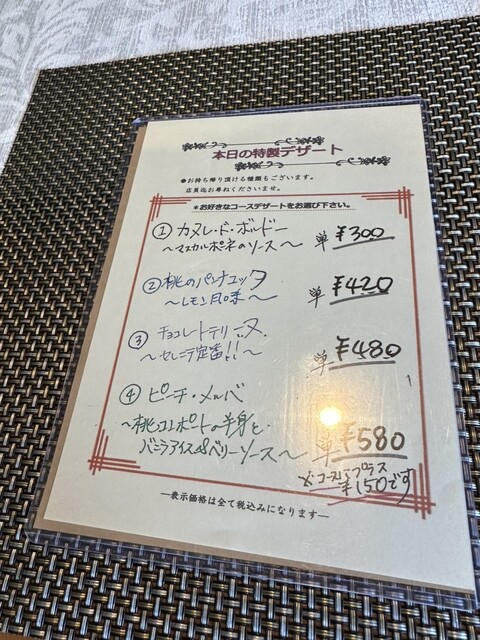 本日の特製デザート
●お持ち帰り頂ける種類もございます。
店員迄お尋ねくださいませ。
＊お好きなコースデザートをお選び下さい。
① カヌレ・ド・ボルドー
～マスカルポネのソース～ 単 ¥300
② 桃のパンナコッタ
～レモン風味～ 単 ¥420
③ チョコレートテリーヌ
～セレニテ定番!!～ 単 ¥480
④ ピーチ・メルバ
～桃コンポートの半身と
バニラアイス&ベリーソース～ 単 ¥580
※コースにプラス
¥150です
―表示価格は全て税込みになります―